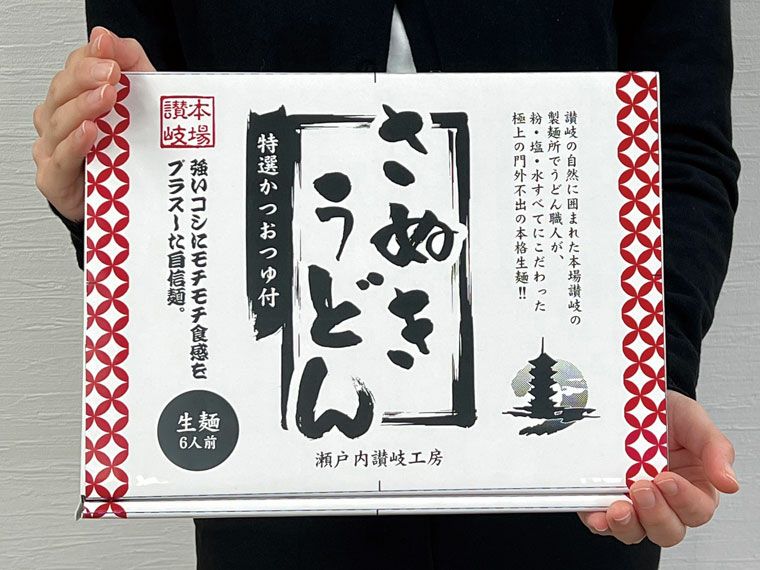 讃岐の自然に囲まれた本場讃岐の
製麺所でうどん職人が、
粉・塩・水すべてにこだわった
極上の門外不出の本格生麺!!
さぬき
うどん
特選かつおつゆ付
本場
讃岐
強いコシにモチモチ食感を
プラスした自信麺。
生麺
6人前
瀬戸内讃岐工房